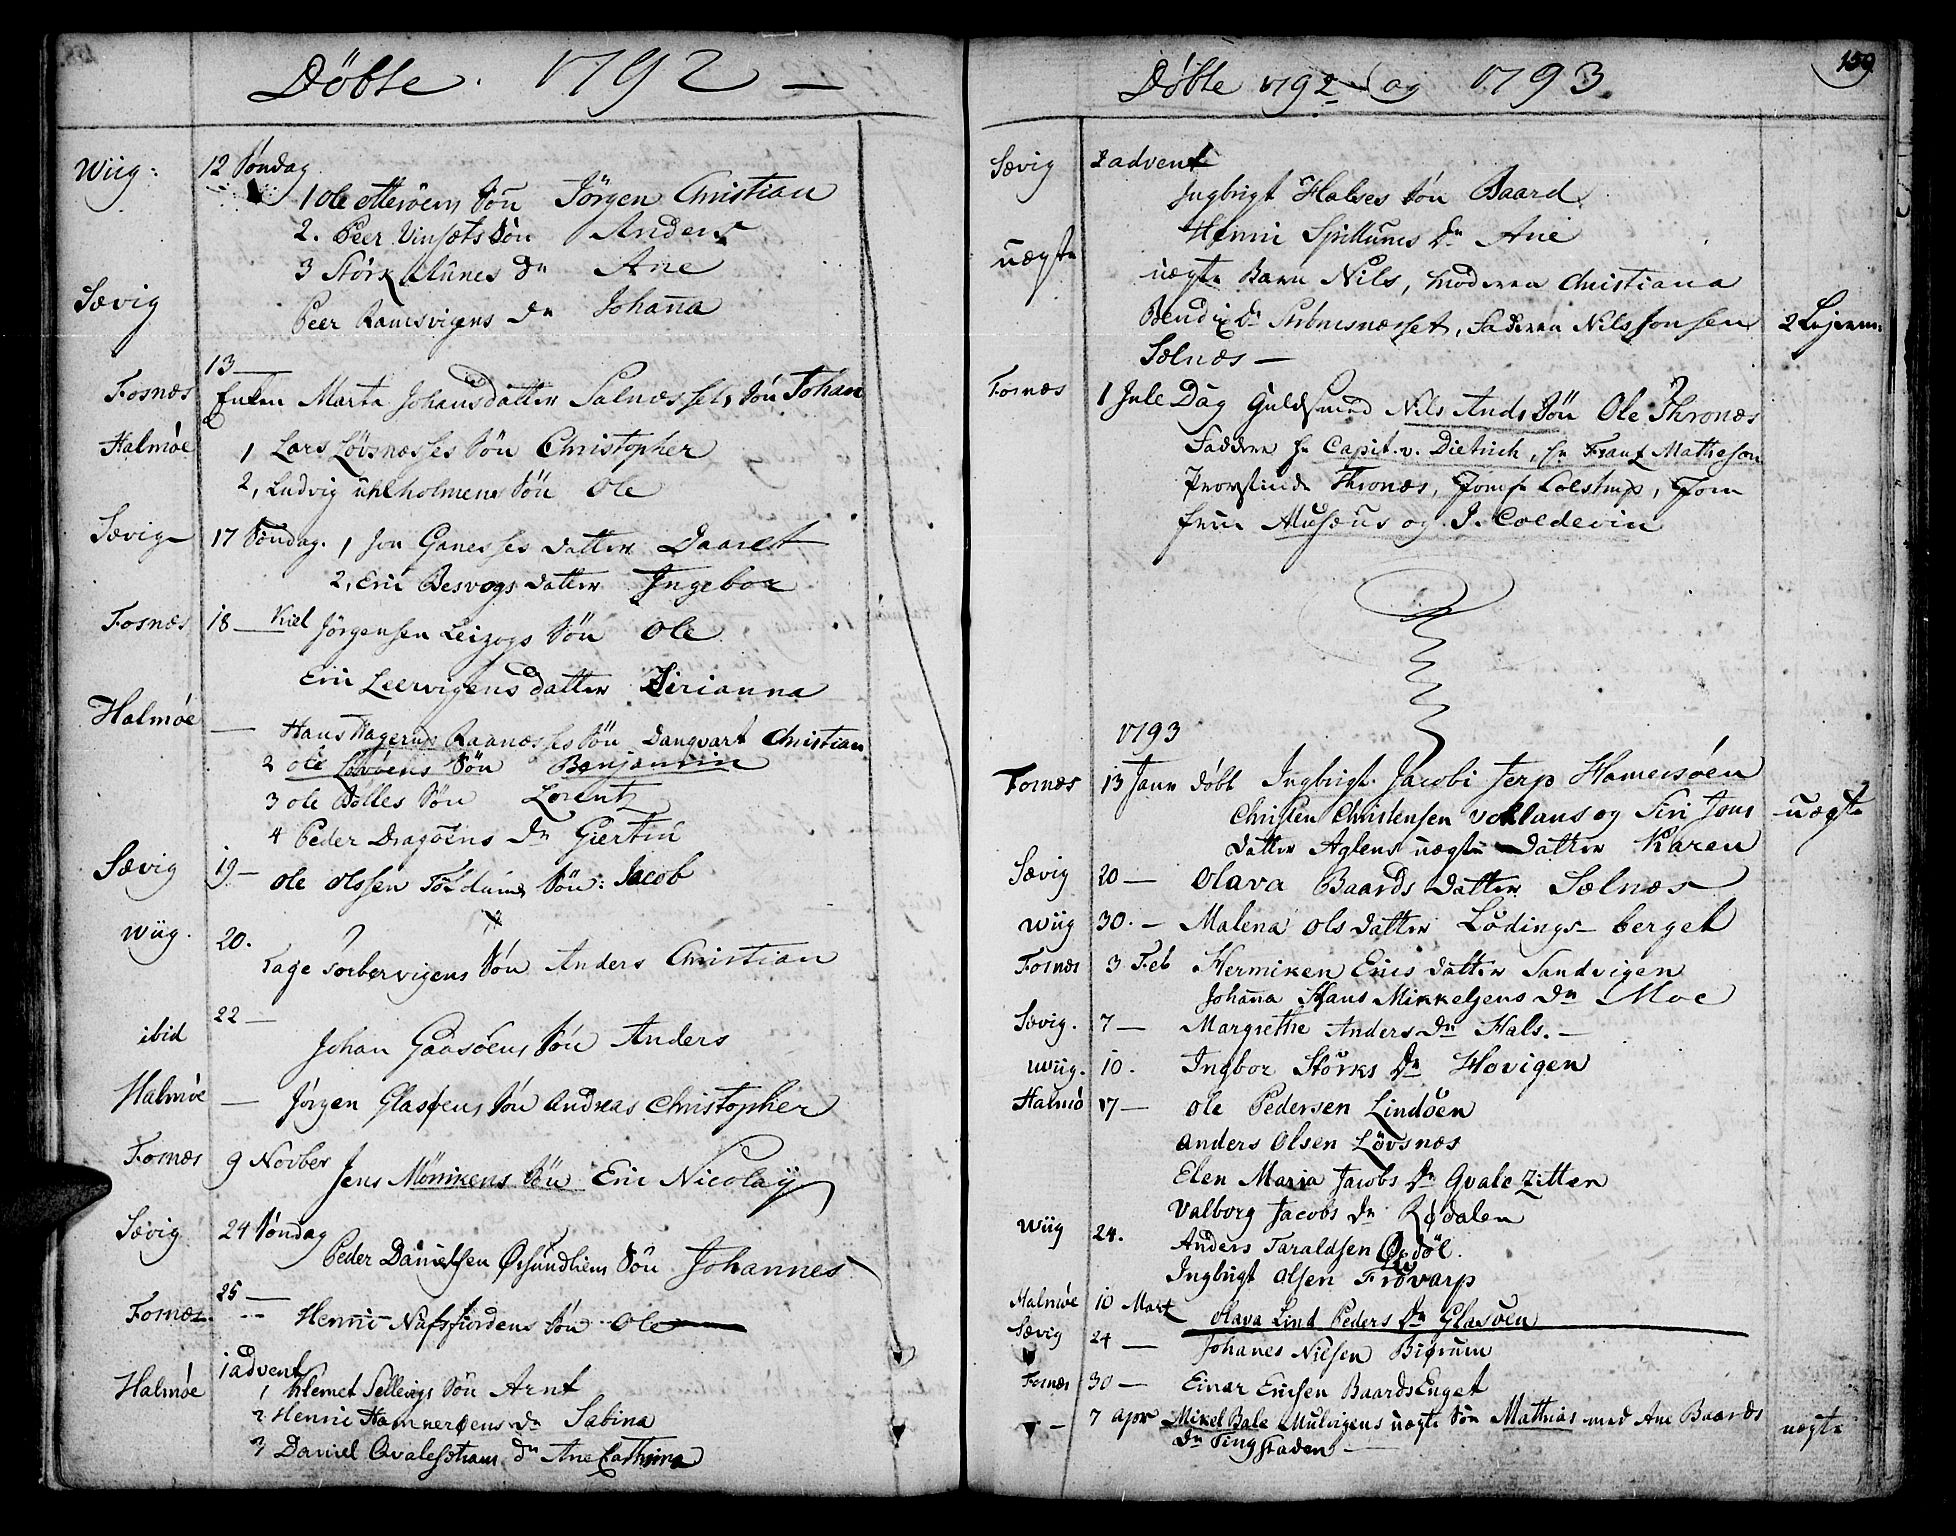 Döbte. 1792 —
Wiig: 12 Søndag
1 Ole otterøens Søn Jörgen Christian
2. Peer Vinsets Søn Anders
3 Störk Dn Ane
Sævig
Peer Ramsvigens Dn Johanna
13 —
Fosnæs Enken Marta Johansdatter Salnæsset, Søn Johan
Halmøe 1 Lars Lövsnæsses Søn Christopher
2, Ludvig uhlholmens Søn Ole
Sævig 17 Søndag. 1 Jon Ganesses datter Daaret
2, Eric Besvogs datter Ingebor
Fosnæs 18 — Kiel Jörgensen Leizogs Søn Ole
Eric Leervigens datter Sirianna
Halmøe — Hans Hagerups Raanæsses Søn Danqvart Christian
2 ole Lövöens Søn Benjamin
3 ole Bölles Søn Lorentz
4 Peder Dragöens Dn Giertru
Sævig 19 — ole olssen Søn: Jacob
Wiig. 20.
Tage Sørbervigens Søn Anders Christian
22 —
ibid Johan Gaasöens Søn Anders
Halmøe — Jörgen Glasøens Søn Andreas Christopher
Fosnæs 9 Novber Jens Mönikens Søn Eric Nicolaÿ
Sævig 24 Søndag
Peder Danielsen Øjsundhiems Søn Johannes
25 —
Fosnæs. Henric Nufsfiordens Søn Ole
1 advent
Halmøe 1 Klemet Sellevigs Søn Arnt
2 Henric Hamnerøens Dn Sabina
3 Daniel Qvalestrams Dn Ane Cathrina
159
Döbte 1792 og 1793
Sævig 2 advent
Ingbrigt Halses Søn Baard
Henric Spillums Dn Ane
uægte
uægte Barn Nils, Moderen Christiana
Bendix Dr Stibnesnæsset, Faderen Nils Jonsen 2 Lejerm:
Sælnæs —
Fosnæs 1 Jule Dag Guldsmed Nils Ands Søn Ole Thronæs
Faddere Hr Capit. v. Dietrich, Hr Frantz Matheson
Provstinde Thronæs, Jomfr Colstrup, Jom
frue Musæus og J. Coldevin
1793
Fosnæs 13 Janv döbt Ingbrigt Jacobi Jerp Hamersöen
Christen Christensen Voklaus og Siri Jons uægte
datter Aglens uægte Datter Karen
Sævig 20 — Olava Baards datter Sælnæs
Wiig 30. — Malena Ols datter Lödings-berget
Fosnæs 3 Feb Hermiken Erics datter Sandvigen
Johanna Hans Mikkelsens Dn Moe
Sævig. 7 — Margrethe Anders Dn Hals. —
Wiig. 10. Ingbor Störks Dn Hovigen
Halmö 17 — Ole Pedersen Lindöen
Anders Olsen Lövsnæs
Elen Maria Jacobs Dn Gvalezitten
Valborg Jacobs Dn Rødalen
Wiig 24. Anders Taraldsen
Ingbrigt Olsen Frövarp
Halmøe 10 Martz Olava Lind Peders Dn Glasöen
Sævig 24 — Johanes Nilsen Biørum
Fosnæs 30 — Einar Ericsen BaardsEnget
— 7 Apr Mikel Bale Mulvigens uægte Søn Mathias med Ane Baards uægte
Dn Tingstaden —